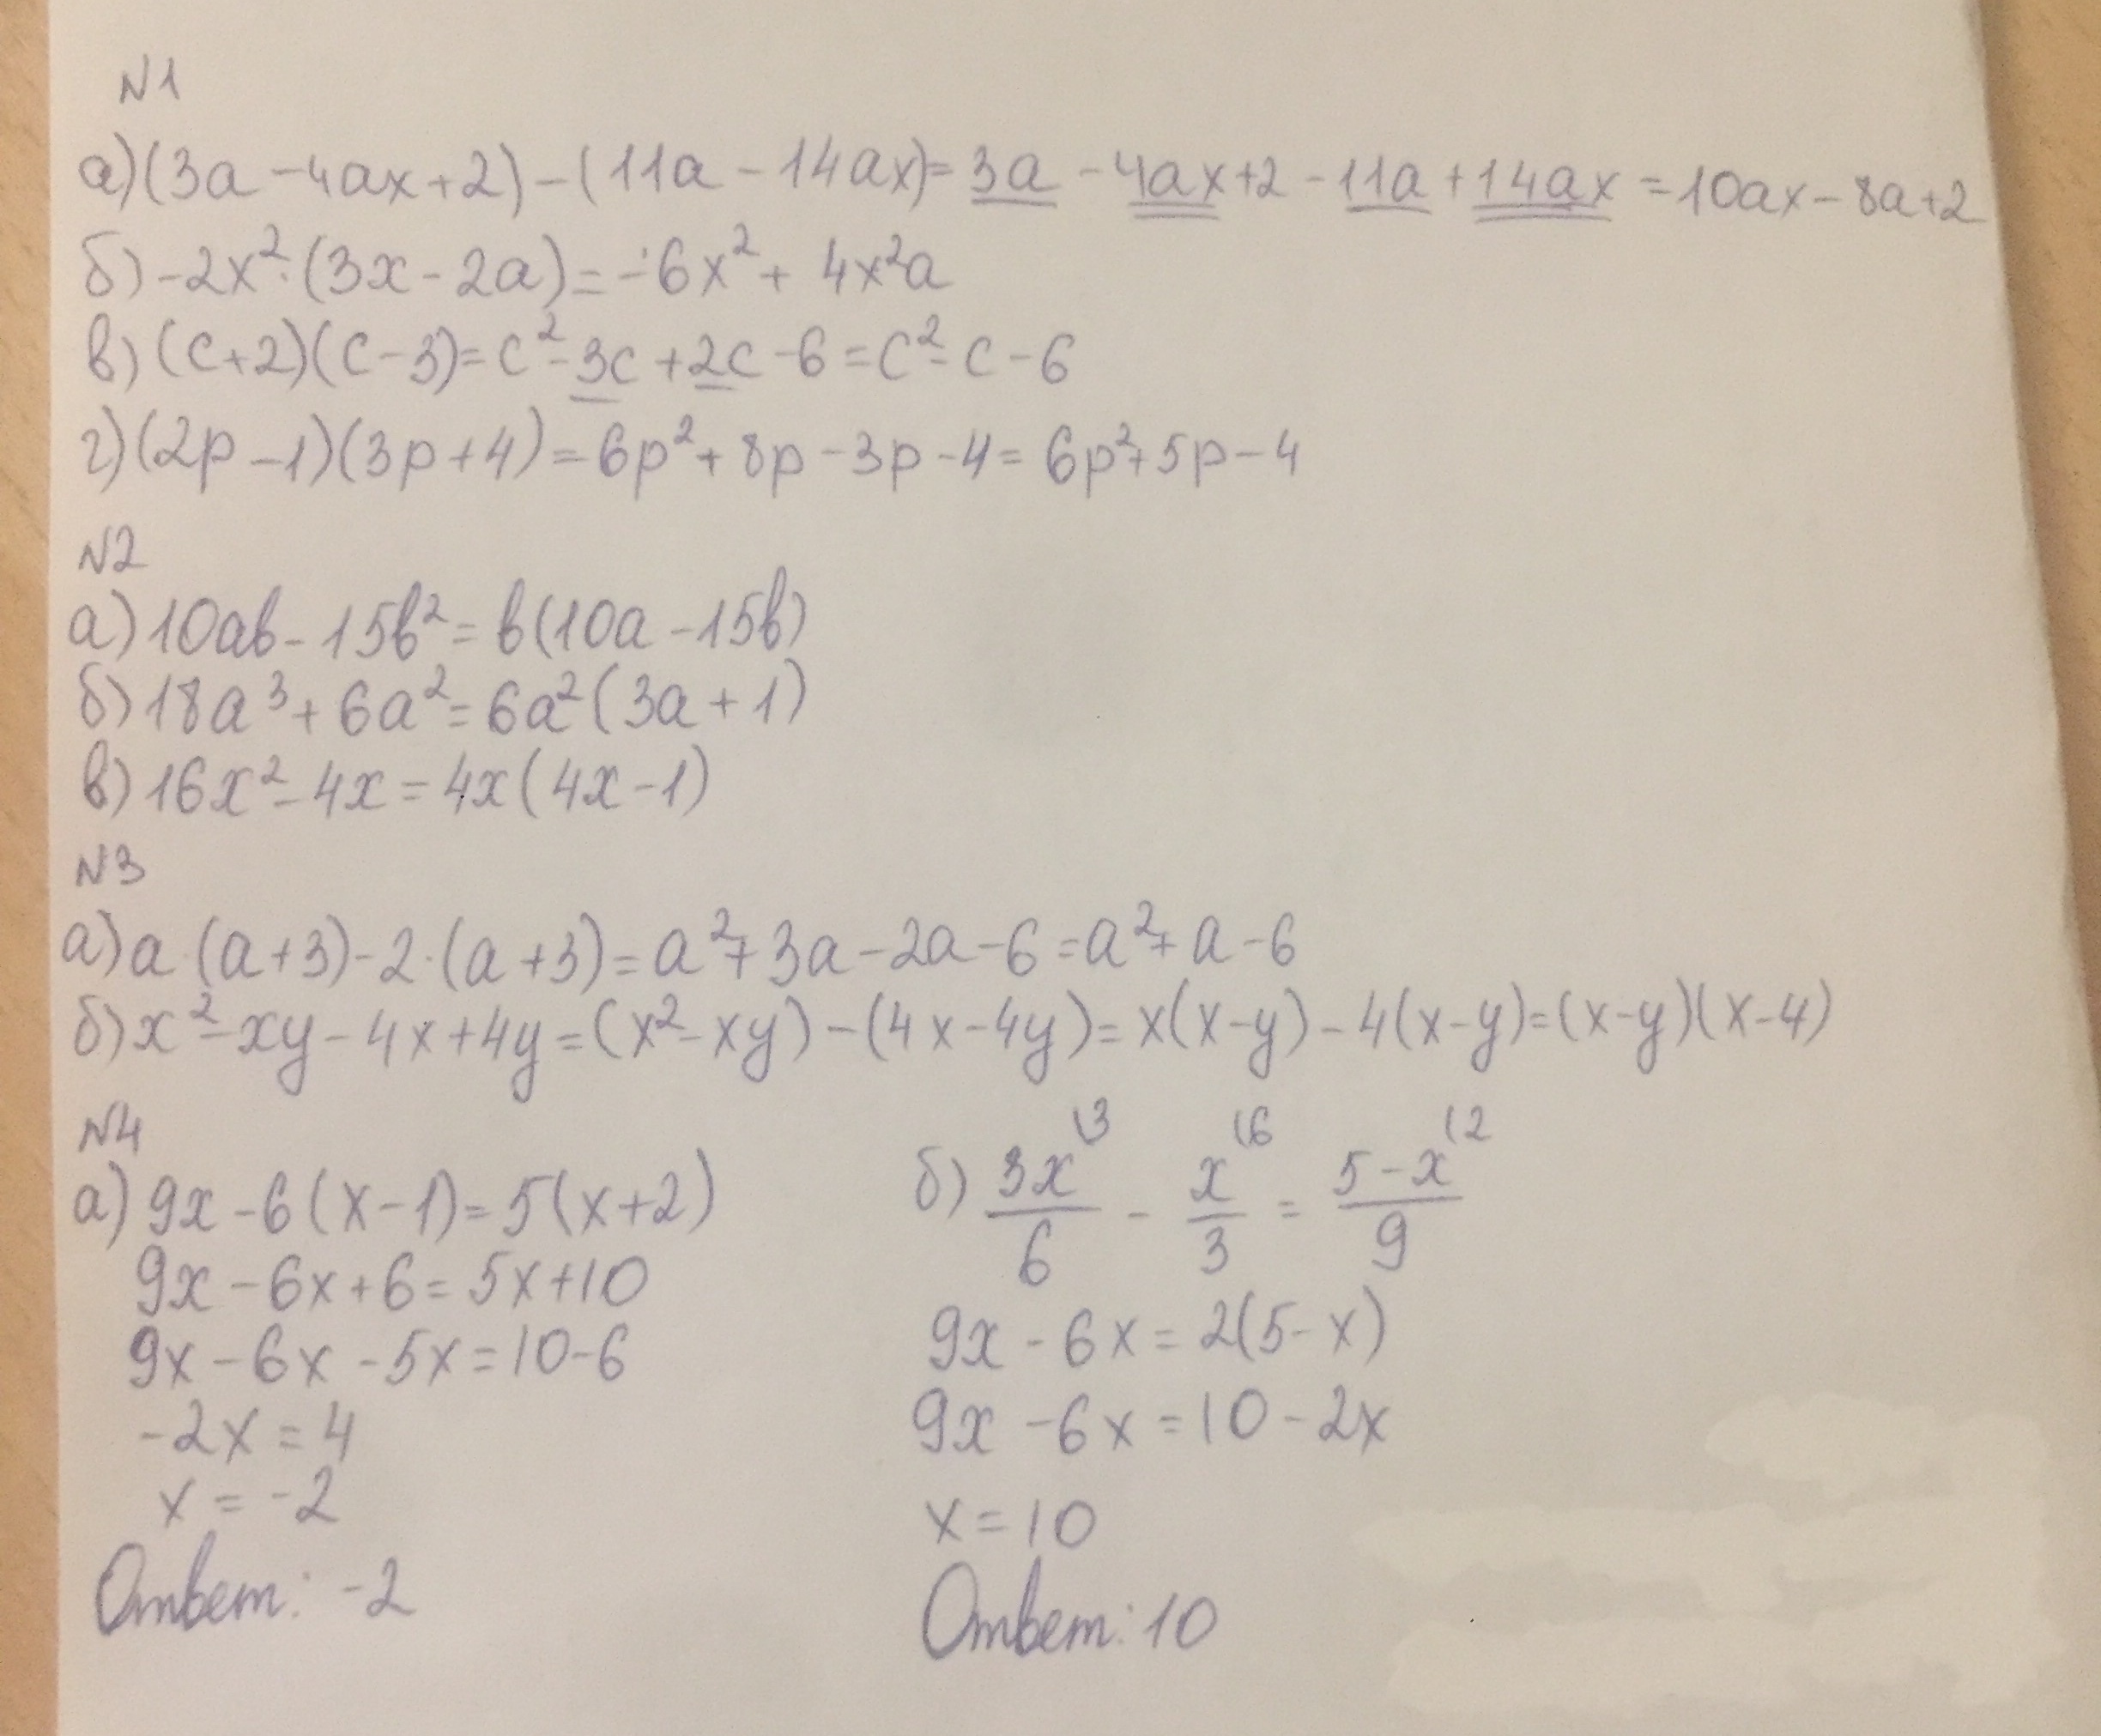 N1
а) (3a - 4ax + 2) - (11a - 14ax) = 3a - 4ax + 2 - 11a + 14ax = 10ax - 8a + 2
б) -2x² · (3x - 2a) = -6x² + 4x²a
в) (c + 2)(c - 3) = c² - 3c + 2c - 6 = c² - c - 6
г) (2p - 1)(3p + 4) = 6p² + 8p - 3p - 4 = 6p² + 5p - 4
N2
а) 10ab - 15b² = b(10a - 15b)
б) 18a³ + 6a² = 6a²(3a + 1)
в) 16x² - 4x = 4x(4x - 1)
N3
а) a · (a + 3) - 2 · (a + 3) = a² + 3a - 2a - 6 = a² + a - 6
б) x² - xy - 4x + 4y = (x² - xy) - (4x - 4y) = x(x - y) - 4(x - y) = (x - y)(x - 4)
N4
а) 9x - 6(x - 1) = 5(x + 2)
9x - 6x + 6 = 5x + 10
9x - 6x - 5x = 10 - 6
-2x = 4
x = -2
Ответ: -2
б) 3x\3/6 - x\6/3 = 5 - x\2/9
9x - 6x = 2(5 - x)
9x - 6x = 10 - 2x
x = 10
Ответ: 10